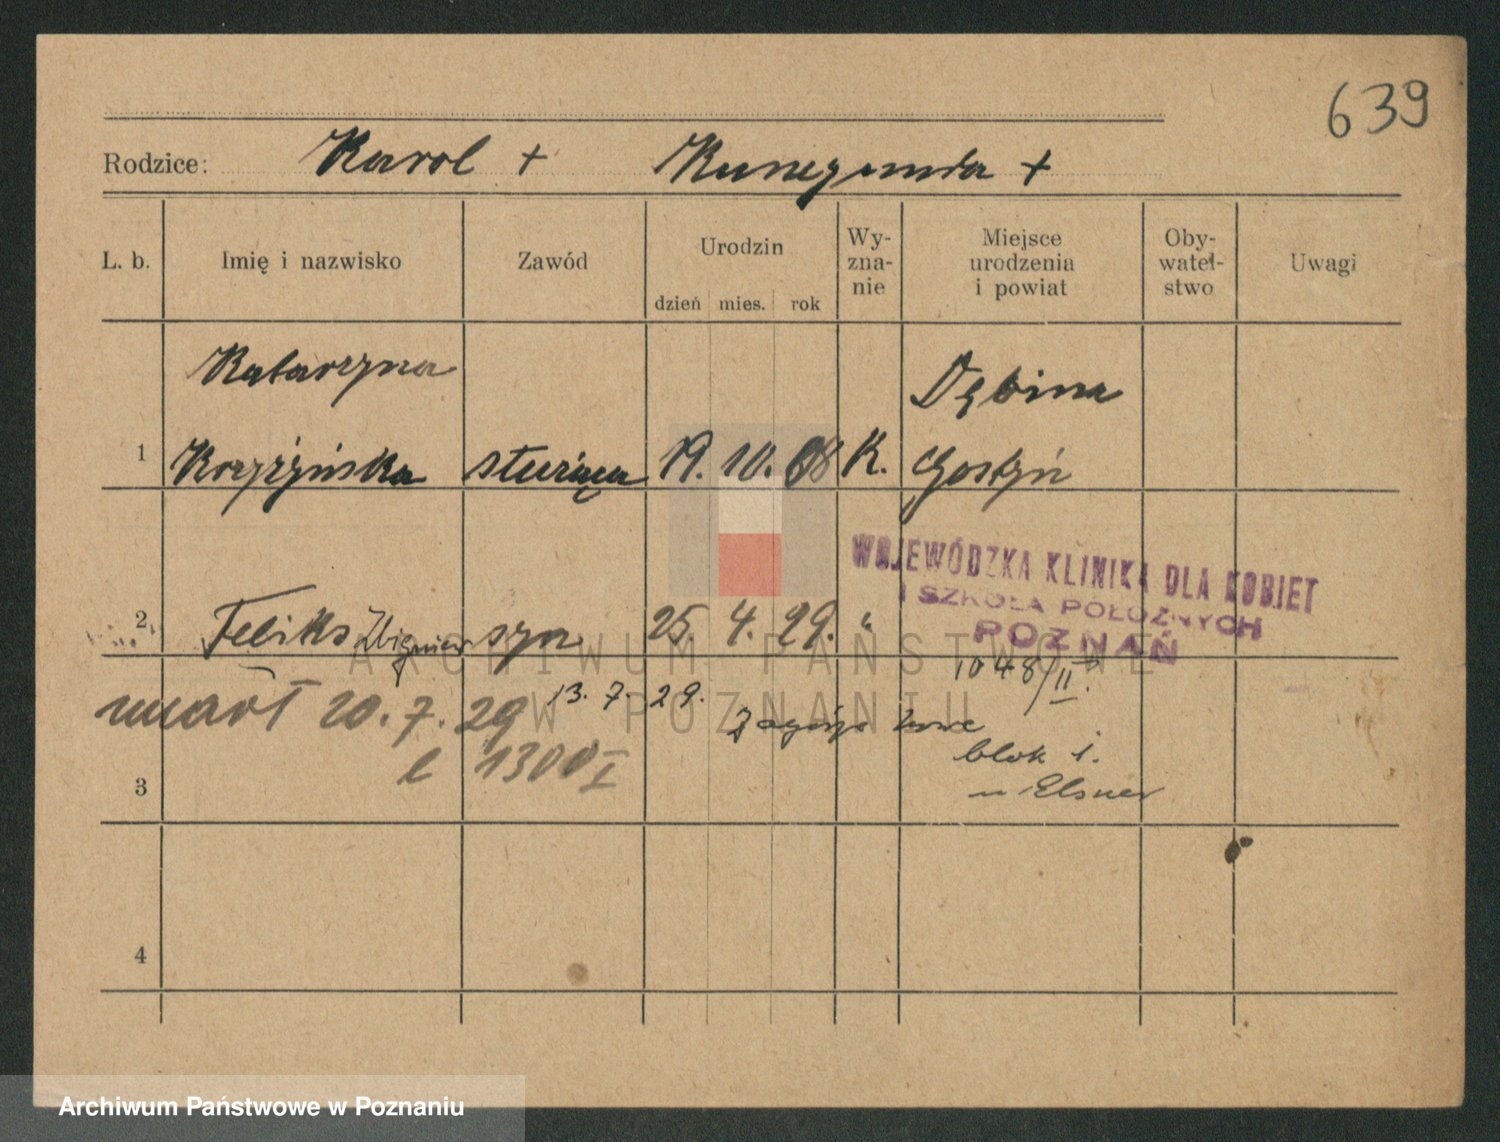 639
Rodzice: Karol + Kunegunda +
L. b. Imię i nazwisko Zawód Urodzin dzień mies. rok Wy-zna-nie Miejsce urodzenia i powiat Oby-watel-stwo Uwagi
Katarzyna Dębina
1 służąca 19. 10. 08 K. Gostyń
WOJEWÓDZKA KLINIKA DLA KOBIET
I SZKOŁA POŁOŻNYCH
POZNAŃ
2 Feliks Zbigniew syn 25. 4. 29. "
1048/II.
umarł 20. 7. 29 13. 7. 29.
blok 1.
l 1300 I
u Elsner
3
4
ARCHIWUM PAŃSTWOWE
W POZNANIU
Archiwum Państwowe w Poznaniu